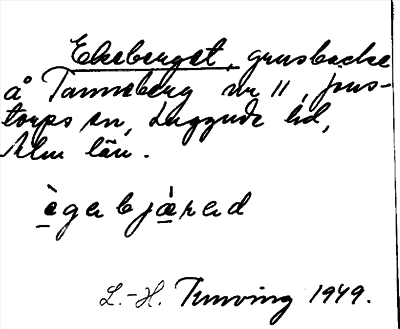 Ekeberget, grusbacke
å Tanneberg nr 11, Jons-
torps sn, Luggude hd,
Mlm län.
ègabjàrad
L.-H. Tunving 1949.